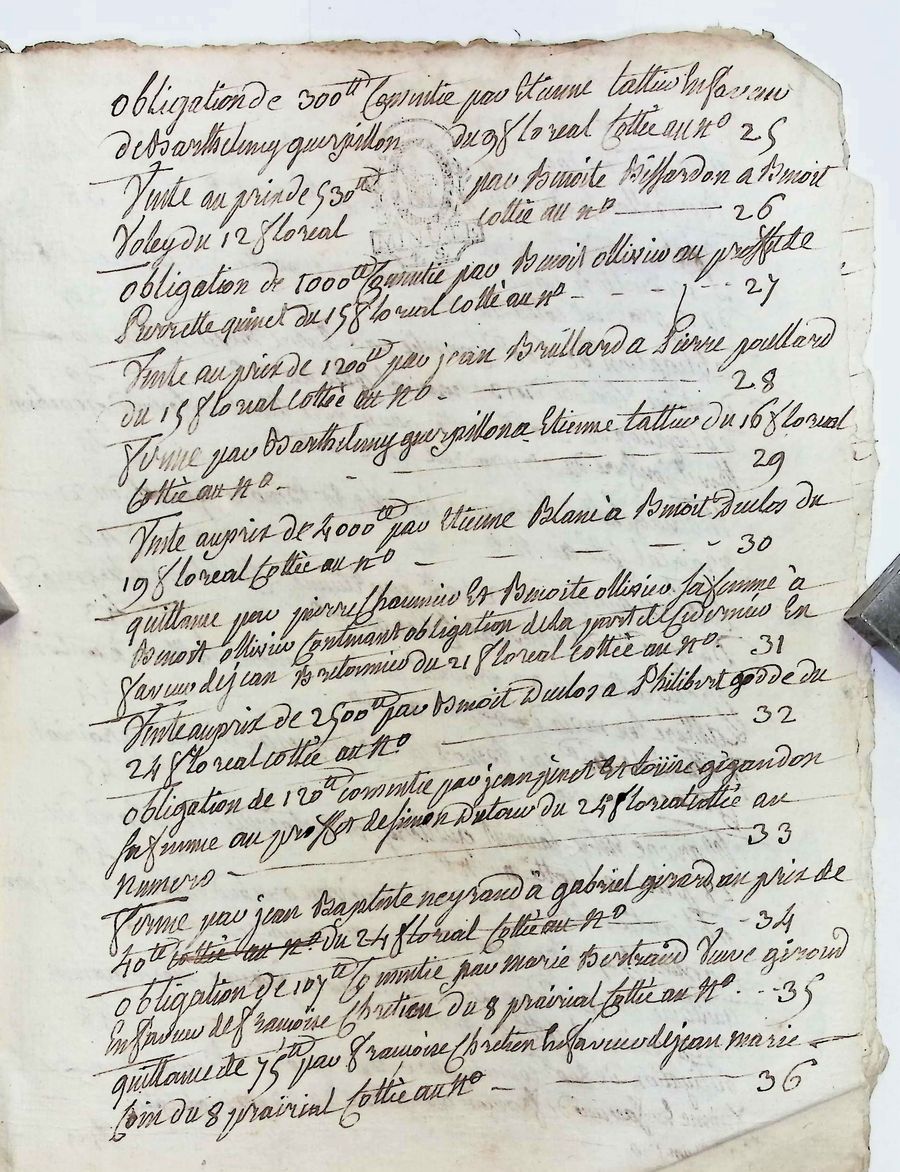 obligation de 300tt Consentie par Etienne lattier En faveur
de Barthelemy guerpillon du 9 floreal Cottée au No 25
Vente au prix de 530tt par Benoite Biffardon a Benoit
Voley du 12 floreal cottée au no 26
obligation de 1000tt Consentie par Benoit ollivier au proffit de
Pierrette quinet du 15 floreal cottée au no 27
Vente au prix de 1200tt par jean Brullard a Pierre poullard
du 15 floreal Cottée au No 28
ferme par Barthelemy guerpillon a Etienne lattier du 16 floreal
Cottée au No 29
Vente au prix de 4000tt par Etienne Blanc à Benoit Duclos du
19 floreal Cottée au no 30
quittance par pierre Chaumier Et Benoite ollivier sa femme à
Benoit ollivier Contenant obligation de la part de Ce dernier En
faveur de jean du 21 floreal cottée au No. 31
Vente au prix de 2500tt par Benoit Duclos a Philibert godde du
24 floreal cottée au No 32
obligation de 120tt consentie par jean jinet Et louise gigandon
sa femme au proffit de simon Dutour du 24 floreal cottée au
numero 33
ferme par jean Baptiste neyrand à gabriel girard au prix de
40tt cottée au No. du 24 floreal Cottée au No 34
obligation de 107tt Consentie par marie Bertraud Veuve giroud
En faveur de françoise Chretien du 8 prairial Cottée au No. 35
quittance de 75tt par françoise Chretien En faveur de jean marie
Coin du 8 prairial Cottée au No 36